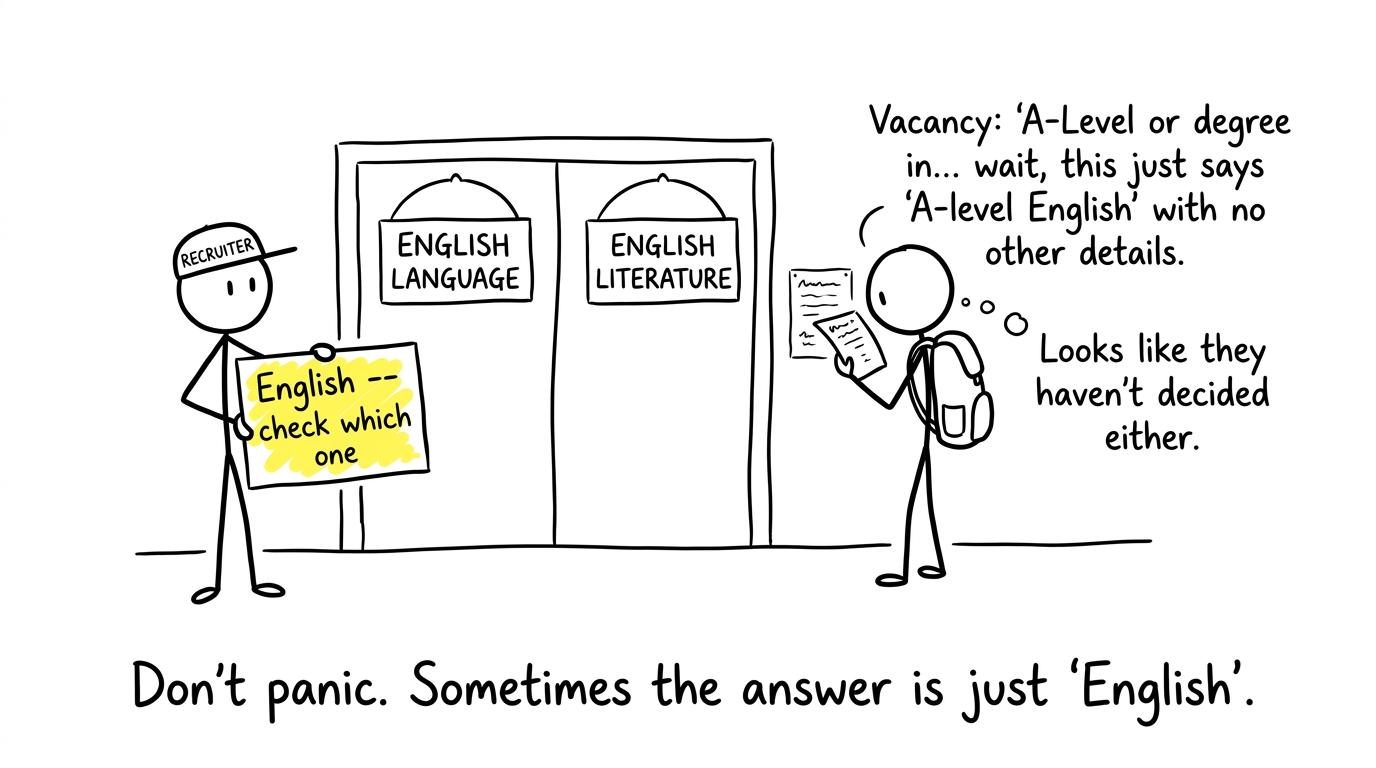 Vacancy: ‘A-Level or degree
in... wait, this just says
‘A-level English’ with no
other details.
RECRUITER
ENGLISH
LANGUAGE
ENGLISH
LITERATURE
English --
check which
one
Looks like they
haven’t decided
either.
Don’t panic. Sometimes the answer is just ‘English’.